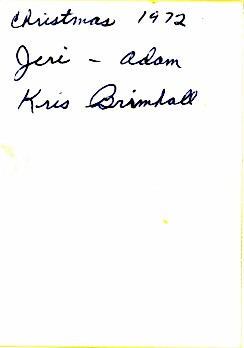 Christmas 1972
Jeri - Adam
Kris Brimhall